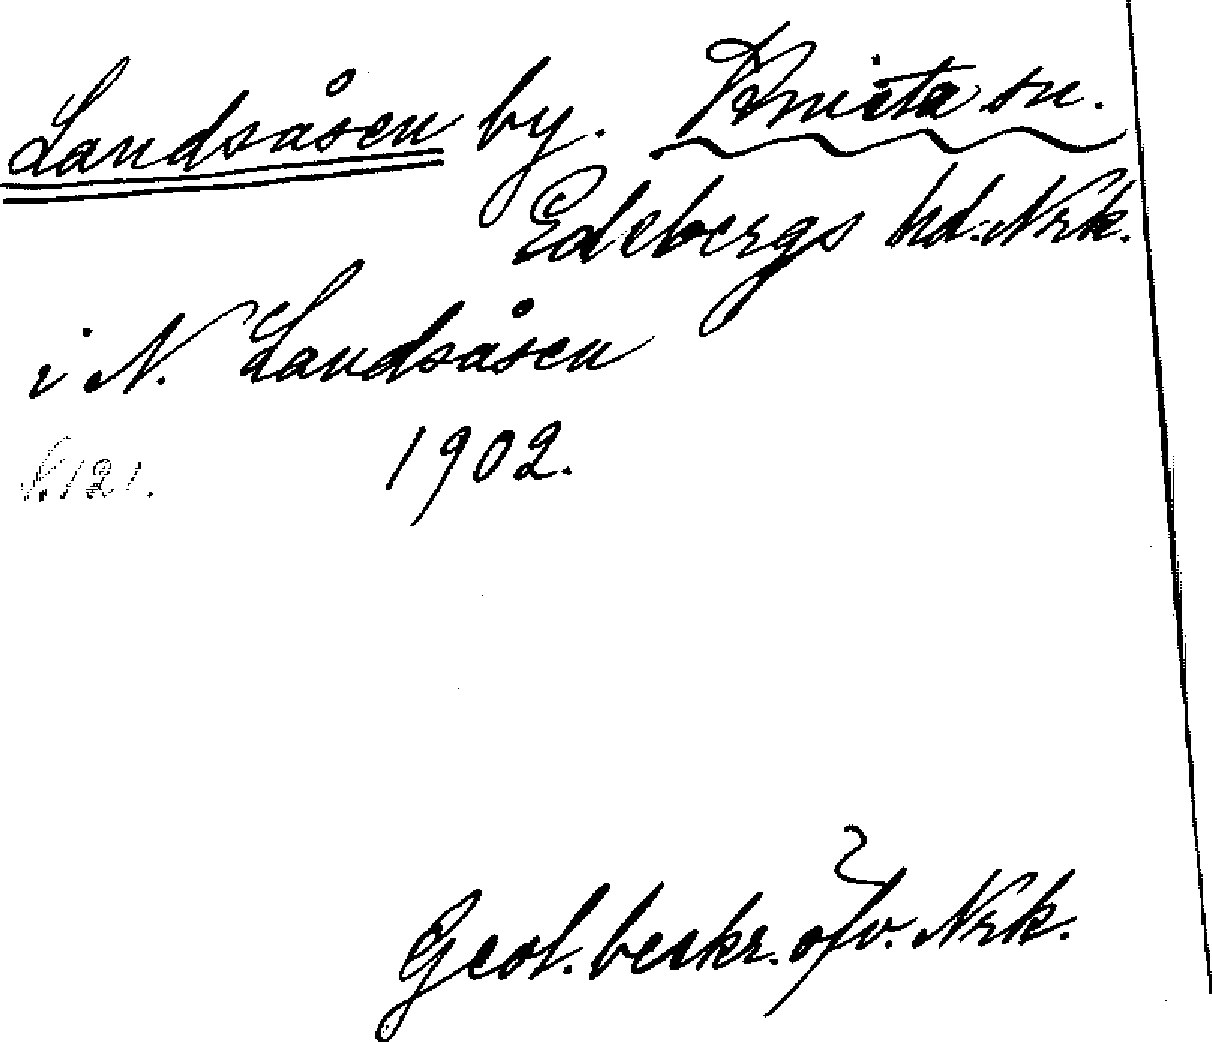 Landsåsen by. Knista sn.
Edsbergs hd. Nrk.
i N. Landsåsen
1902.
s. 121.
Geol. beskr. öfv. Nrk.